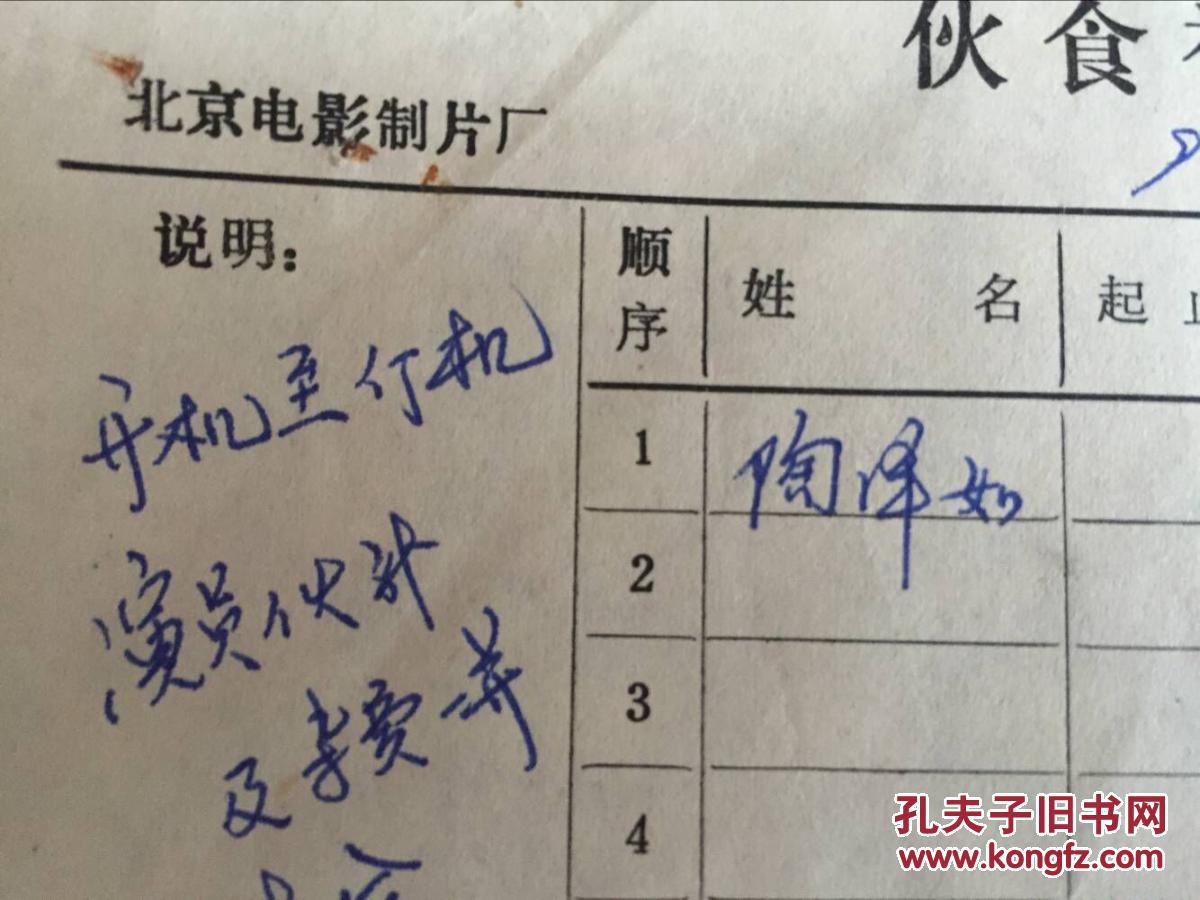 伙食
北京电影制片厂
说明：
顺序
姓名
起
开机至停机
演员伙计
及
1
陶泽如
2
3
4
孔夫子旧书网
www.kongfz.com